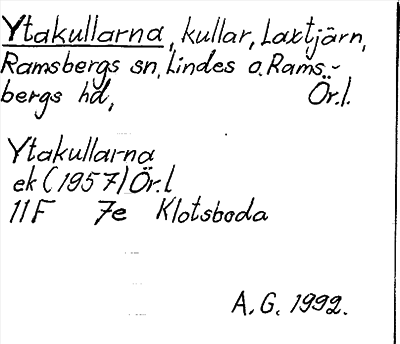 Ytakullarna, kullar, Laxtjärn,
Ramsbergs sn, Lindes o. Rams-
bergs hd, Ör.l.
Ytakullarna
ek (1957) Ör.l
11F 7e Klotsboda
A.G. 1992.